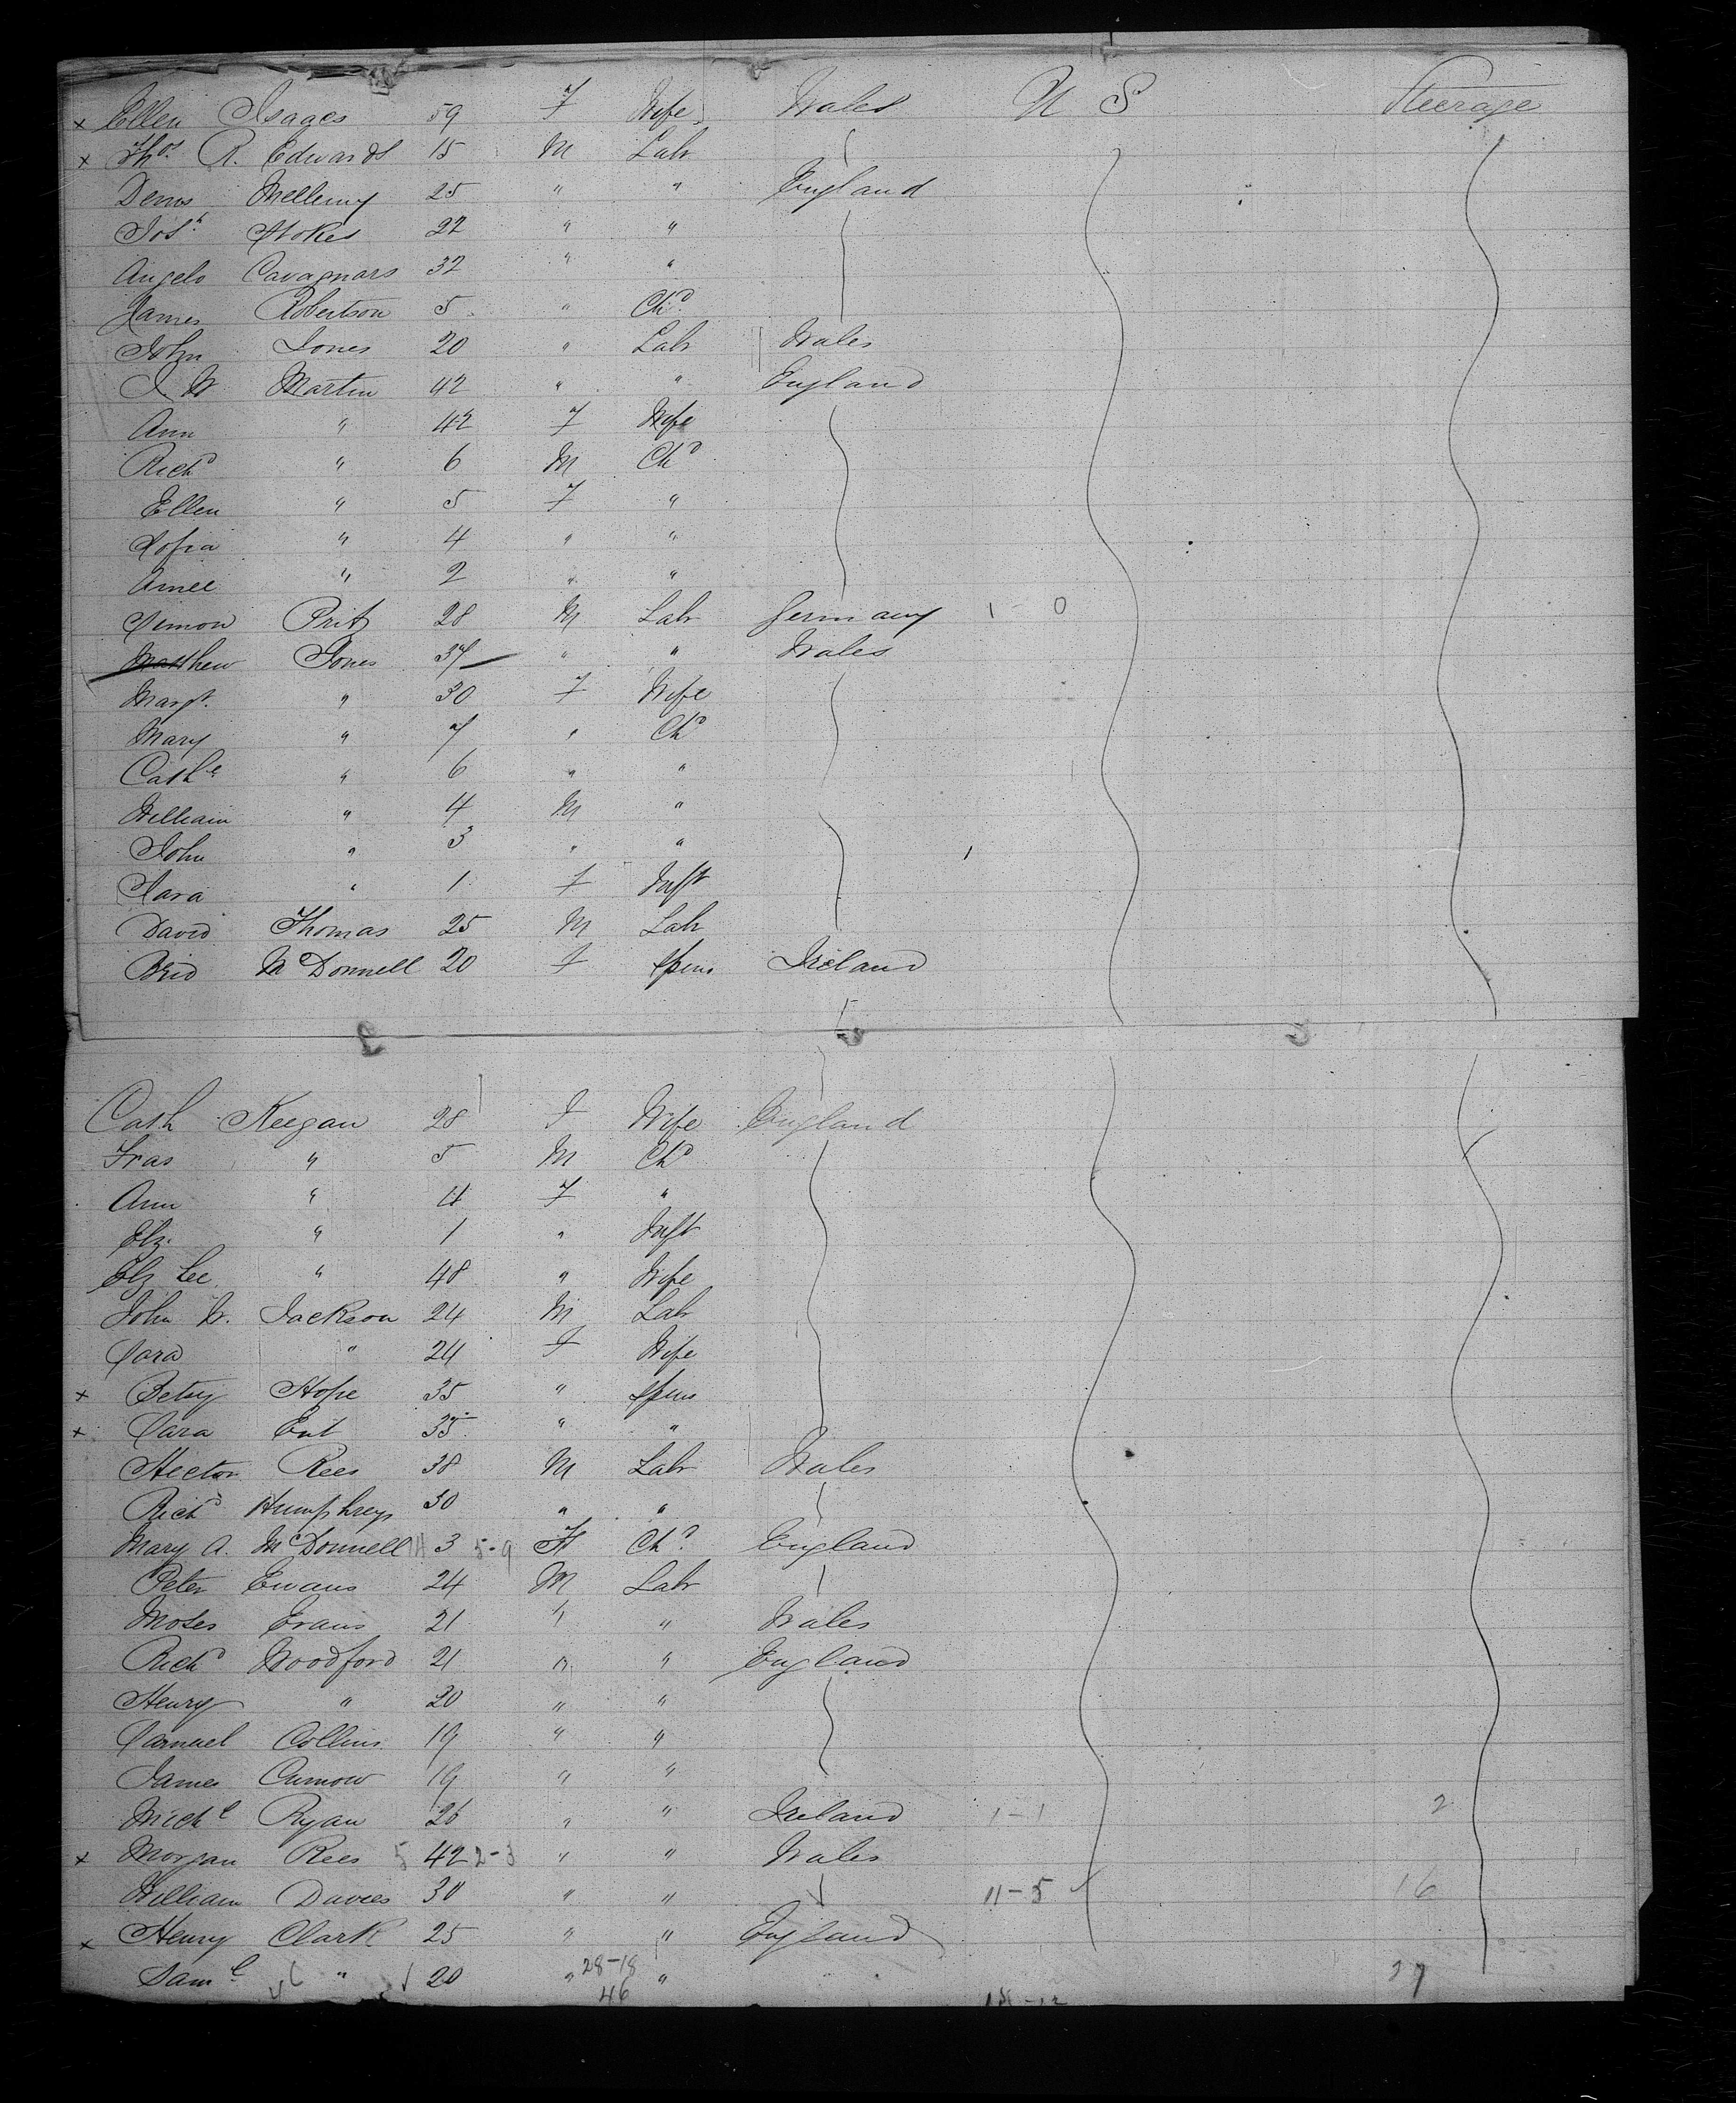 x Ellen Isaacs 59 F Wife Wales U S Steerage
x Thos. R. Edwards 15 M Labr
Denis 25 " " England
Josh. Stokes 22 " "
Angelo Cavagnaro 32 " "
James Robertson 5 " Chd.
John Jones 20 " Labr Wales
J W Martin 42 " " England
Ann " 42 F Wife
Richd " 6 M Chd
Ellen " 5 F "
Sofia " 4 " "
Amee " 2 " "
Simon Pritz 28 M Labr Germany 1-0
Matthew Jones 37 " " Wales
Margt. " 30 F Wife
Mary " 7 " Chd
Cathe " 6 " "
William " 4 M "
John " 3 " "
Sara " 1 F Inft
David Thomas 25 M Labr
Brid McDonnell 20 F Spins Ireland
Cath Keegan 28 F Wife England
Fras " 5 M Chd
Ann " 4 F "
Elz. " 1 " Inft
Elz Lee " 48 " Wife
John W. Jackson 24 M Labr
Sara " 24 F Wife
x Betsy Hope 35 " Spins
x Sara 35 " "
Hector Rees 38 M Labr Wales
Richd Humphreys 30 " "
Mary A. McDonnell 3 5-9 F Chd. England
Peter Evans 24 M Labr
Moses Evans 21 " " Wales
Richd Woodford 21 " " England
Henry " 20 " "
Samuel Collins 19 " "
James Curnow 19 " "
Michl Ryan 26 " " Ireland 1-1 2
x Morgan Rees 5 42 2-3 " " Wales
William Davies 30 " " 11-5 16
x Henry Clark 25 " " England
Saml " 20 " 28-18 "
46